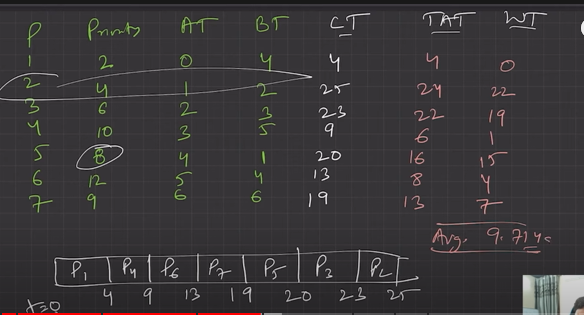 P Priority AT BT CT TAT WT
1 2 0 4 4 4 0
2 4 1 2 25 24 22
3 6 2 3 23 21 19
4 10 3 5 9 6 1
5 8 4 1 20 16 15
6 12 5 4 13 8 4
7 9 6 6 19 13 7
Avg. 9.714
P1 P4 P6 P7 P5 P3 P2
t=0 4 9 13 19 20 23 25